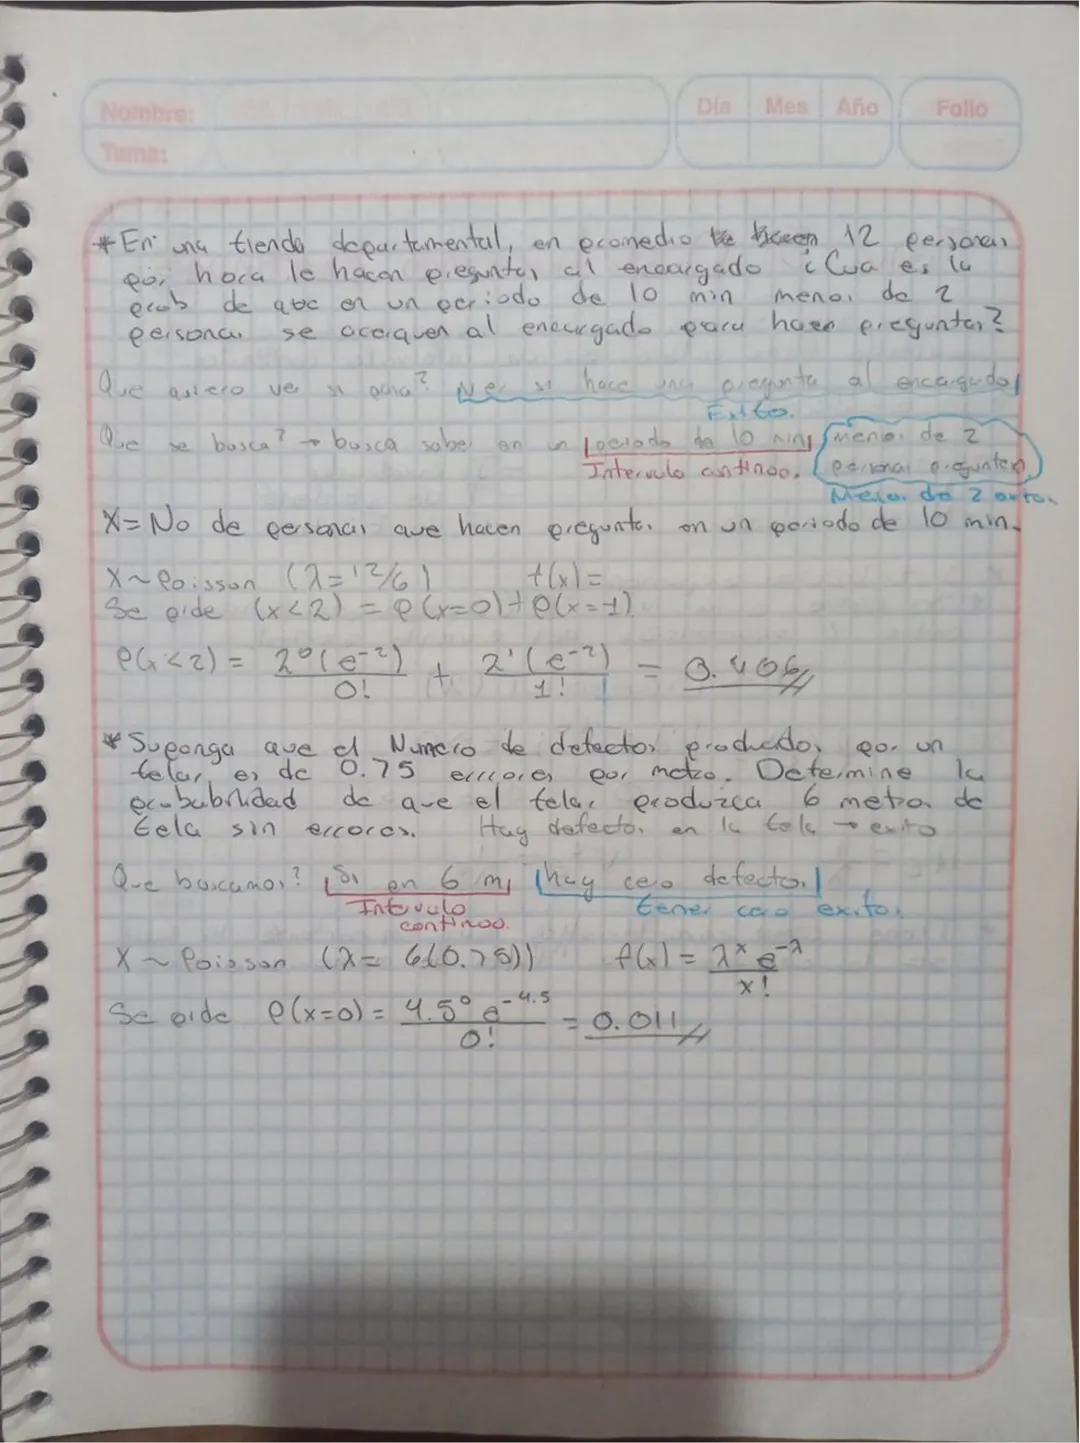 Nombre:
Tema:
Día Mes Año Folio
* En una tienda departamental, en promedio 12 personas
por hora le hacen preguntas al encargado ¿Cua es la
prob de que en un periodo de 10 min menos de 2
personas se acerquen al encargado para hacer preguntas?
Que quiero ver si pasa? Ver si hace una pregunta al encargado
Exito.
Que se busca? → busca saber en un periodo de 10 min menos de 2
personas pregunten
Intervalo continuo.
Menos de 2 exito.
X= No de personas que hacen preguntas en un periodo de 10 min.
X~Poisson (λ=12/6) f(x)=
Se pide (x<2) = P(x=0)+P(x=1)
P(x<2) = 2⁰(e⁻²)/0! + 2¹(e⁻²)/1! = 0.406
* Suponga que el Numero de defectos producidos por un
telar, es de 0.75 errores por metro. Determine la
probabilidad de que el telar produzca 6 metros de
tela sin errores. Hay defectos en la tela → exito
Que buscamos? Si en 6 m, hay cero defectos.
Intervulo tener cero exitos.
continuo.
X ~ Poisson (λ= 6(0.75)) f(x) = λˣ e^-λ/x!
Se pide P(x=0) = 4.5⁰ e^-4.5/0! = 0.011